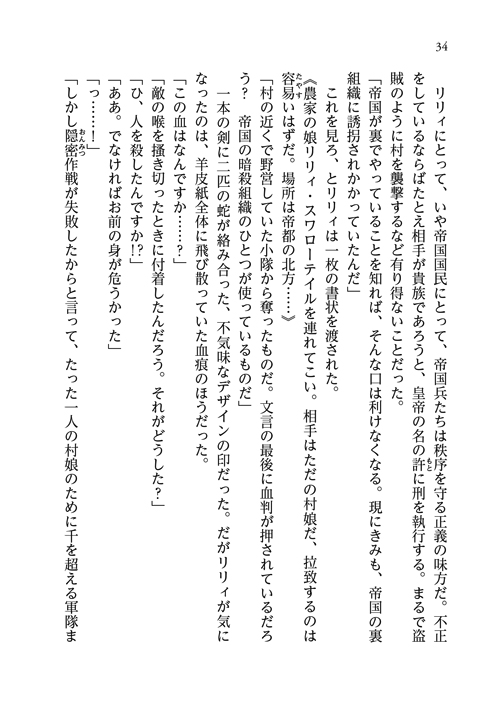 34
リリィにとって、いや帝国国民にとって、帝国兵たちは秩序を守る正義の味方だ。不正
をしているならばたとえ相手が貴族であろうと、皇帝の名の許に刑を執行する。まるで盗
賊のように村を襲撃するなど有り得ないことだった。
「帝国が裏でやっていることを知れば、そんな口は利けなくなる。現にきみも、帝国の裏
組織に誘拐されかかっていたんだ」
これを見ろ、とリリィは一枚の書状を渡された。
《農家の娘リリィ・スワローテイルを連れてこい。相手はただの村娘だ、拉致するのは
容易いはずだ。場所は帝都の北方……》
「村の近くで野営していた小隊から奪ったものだ。文言の最後に血判が押されているだろ
う？　帝国の暗殺組織のひとつが使っているものだ」
一本の剣に二匹の蛇が絡み合った、不気味なデザインの印だった。だがリリィが気に
なったのは、羊皮紙全体に飛び散っていた血痕のほうだった。
「この血はなんですか……？」
「敵の喉を掻き切ったときに付着したんだろう。それがどうした？」
「ひ、人を殺したんですか!?」
「ああ。でなければお前の身が危うかった」
「っ……！」
「しかし隠密作戦が失敗したからと言って、たった一人の村娘のために千を超える軍隊ま
もと
たやす
おんみつ